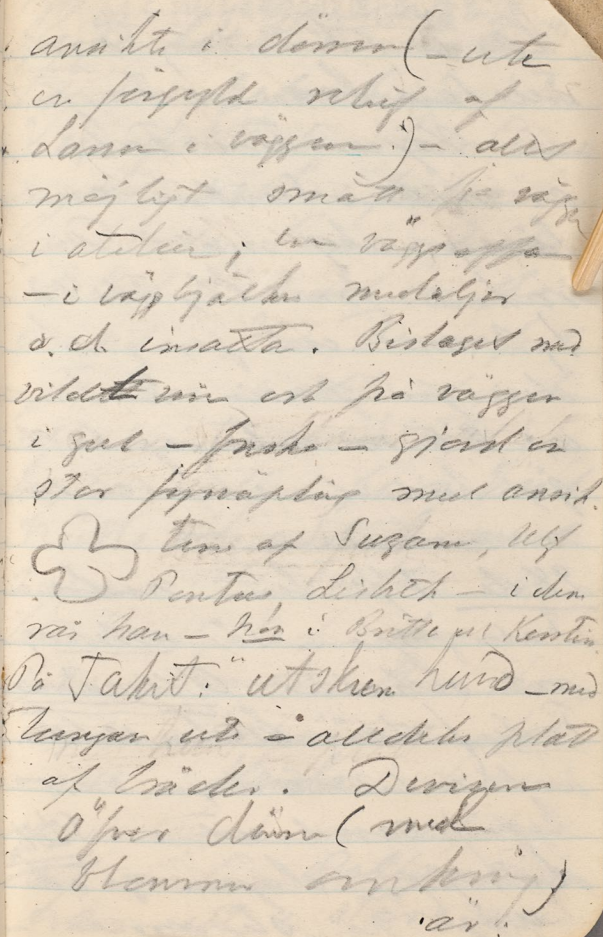 ansikte i dörren (– ute
en förgylld relief af
i väggen.) – allt
möjligt smått
i atelier; en
– i väggbjälken medaljer
o. d. insatta. Beslaget med
vildt vin och på väggen
i gult – – gjord en
stor med ansik-
ten af Suzanne, Ulf
Pontus Lisbeth – i den
var han – hon i Britta och Kerstin.
På Taket: "utskuren hund – med
tungan ute – alldeles platt
af bräder. Devisen
Öfver dörren (med
blommor omkring)
är: